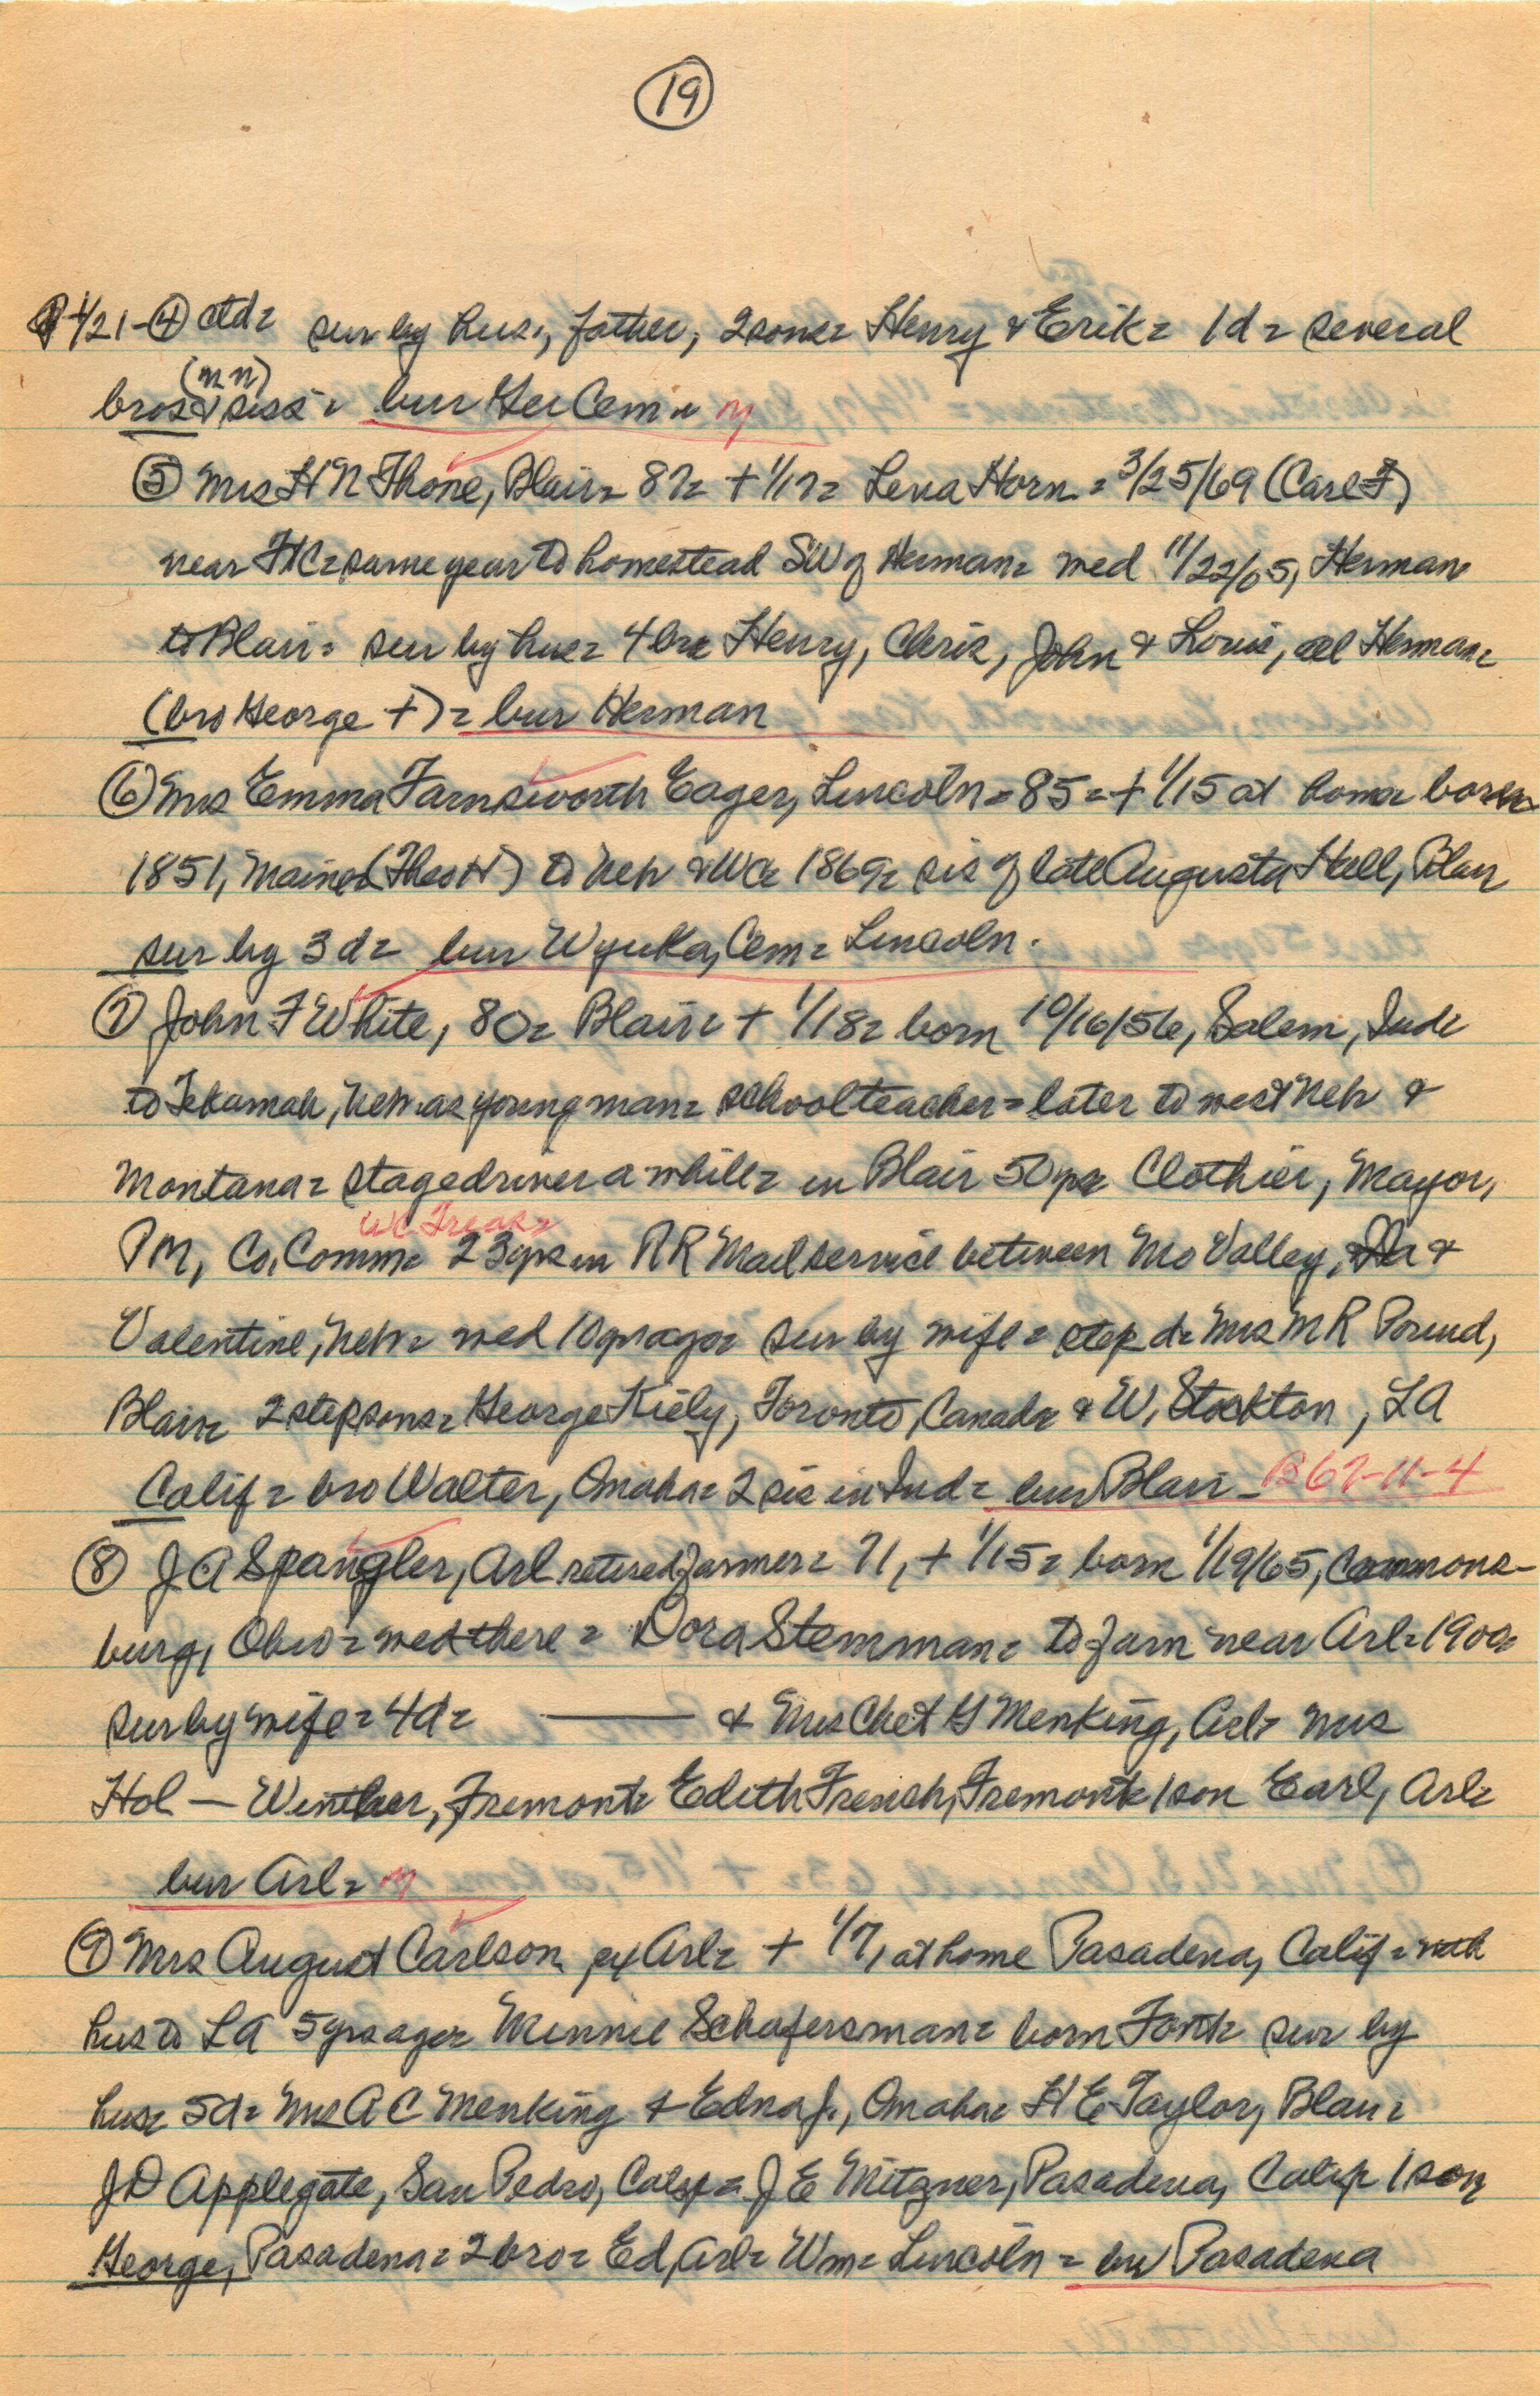 19
1/21-④ ctd= sur by hus., father, 2 sons= Henry & Erik= 1d= several
(n n)
bros & siss= bur Ger Cem= m
⑤ Mrs H N Thone, Blair= 87= + 1/17= Lena Horn= 3/25/69 (Carl F)
near FtC= same year to homestead SW of Herman= med 11/22/05, Herman
to Blair= sur by hus= 4 bro= Henry, Chris, John & Louis, all Herman=
(bro George +)= bur Herman
⑥ Mrs Emma Farnsworth Eager, Lincoln= 85= + 1/15 at home born
1851, Maine= (Theo H) to Neb & WC= 1869= sis of late Augusta Hall, Blair
sur by 3 d= bur Wyuka, Cem= Lincoln.
⑦ John F White, 80= Blair= + 1/18= born 10/16/56, Salem, Ind=
to Tekamah, Neb. as young man= school teacher= later to west Neb &
Montana= stagedriver a while= in Blair 50yrs= Clothier, Mayor,
WC Treas=
PM, Co. Comm= 23yrs in RR Mail service between Mo Valley, Ia &
Valentine, Neb= med 10yrs ago= sur by wife= step d= Mrs M R Pound,
Blair= 2 stepsons= George Kiely, Toronto, Canada & W. Stockton, LA
Calif= bro Walter, Omaha= 2 sis in Ind= bur Blair- B67-11-4
⑧ J A Spangler, Arl retired farmer= 71, + 1/15= born 1/19/65, Cammons-
burg, Ohio= med there= Dora Stemman= to farm near Arl= 1900=
sur by wife= 4d= —— & Mrs Chet G Menking, Arl= Mrs
Hol — Winther, Fremont= Edith French, Fremont= 1 son Earl, Arl=
bur Arl= m
⑨ Mrs August Carlson, ex Arl= + 1/7, at home Pasadena, Calif= with
hus to LA 5yrs ago= Minnie Schafersman= born Font= sur by
hus= 5d= Mrs A C Menking & Edna J., Omaha= H E Taylor, Blair=
J D Applegate, San Pedro, Calif= J E Mitzner, Pasadena, Calif 1 son
George, Pasadena= 2 bro= Ed, Arl= Wm= Lincoln= bur Pasadena